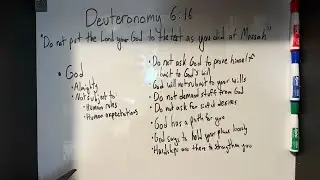 Deuteronomy 6:16
"Do not put the Lord your God to the test as you did at Massah"
• God
- Almighty
- Not subject to:
- Human rules
- Human expectations
• Do not ask God to prove himself
but to God's will
• God will not submit to your wills
• Do not demand stuff from God
• Do not ask for sinful desires
• God has a path for you
• God says to hold your plans loosely
• Hardships are there to strengthen you